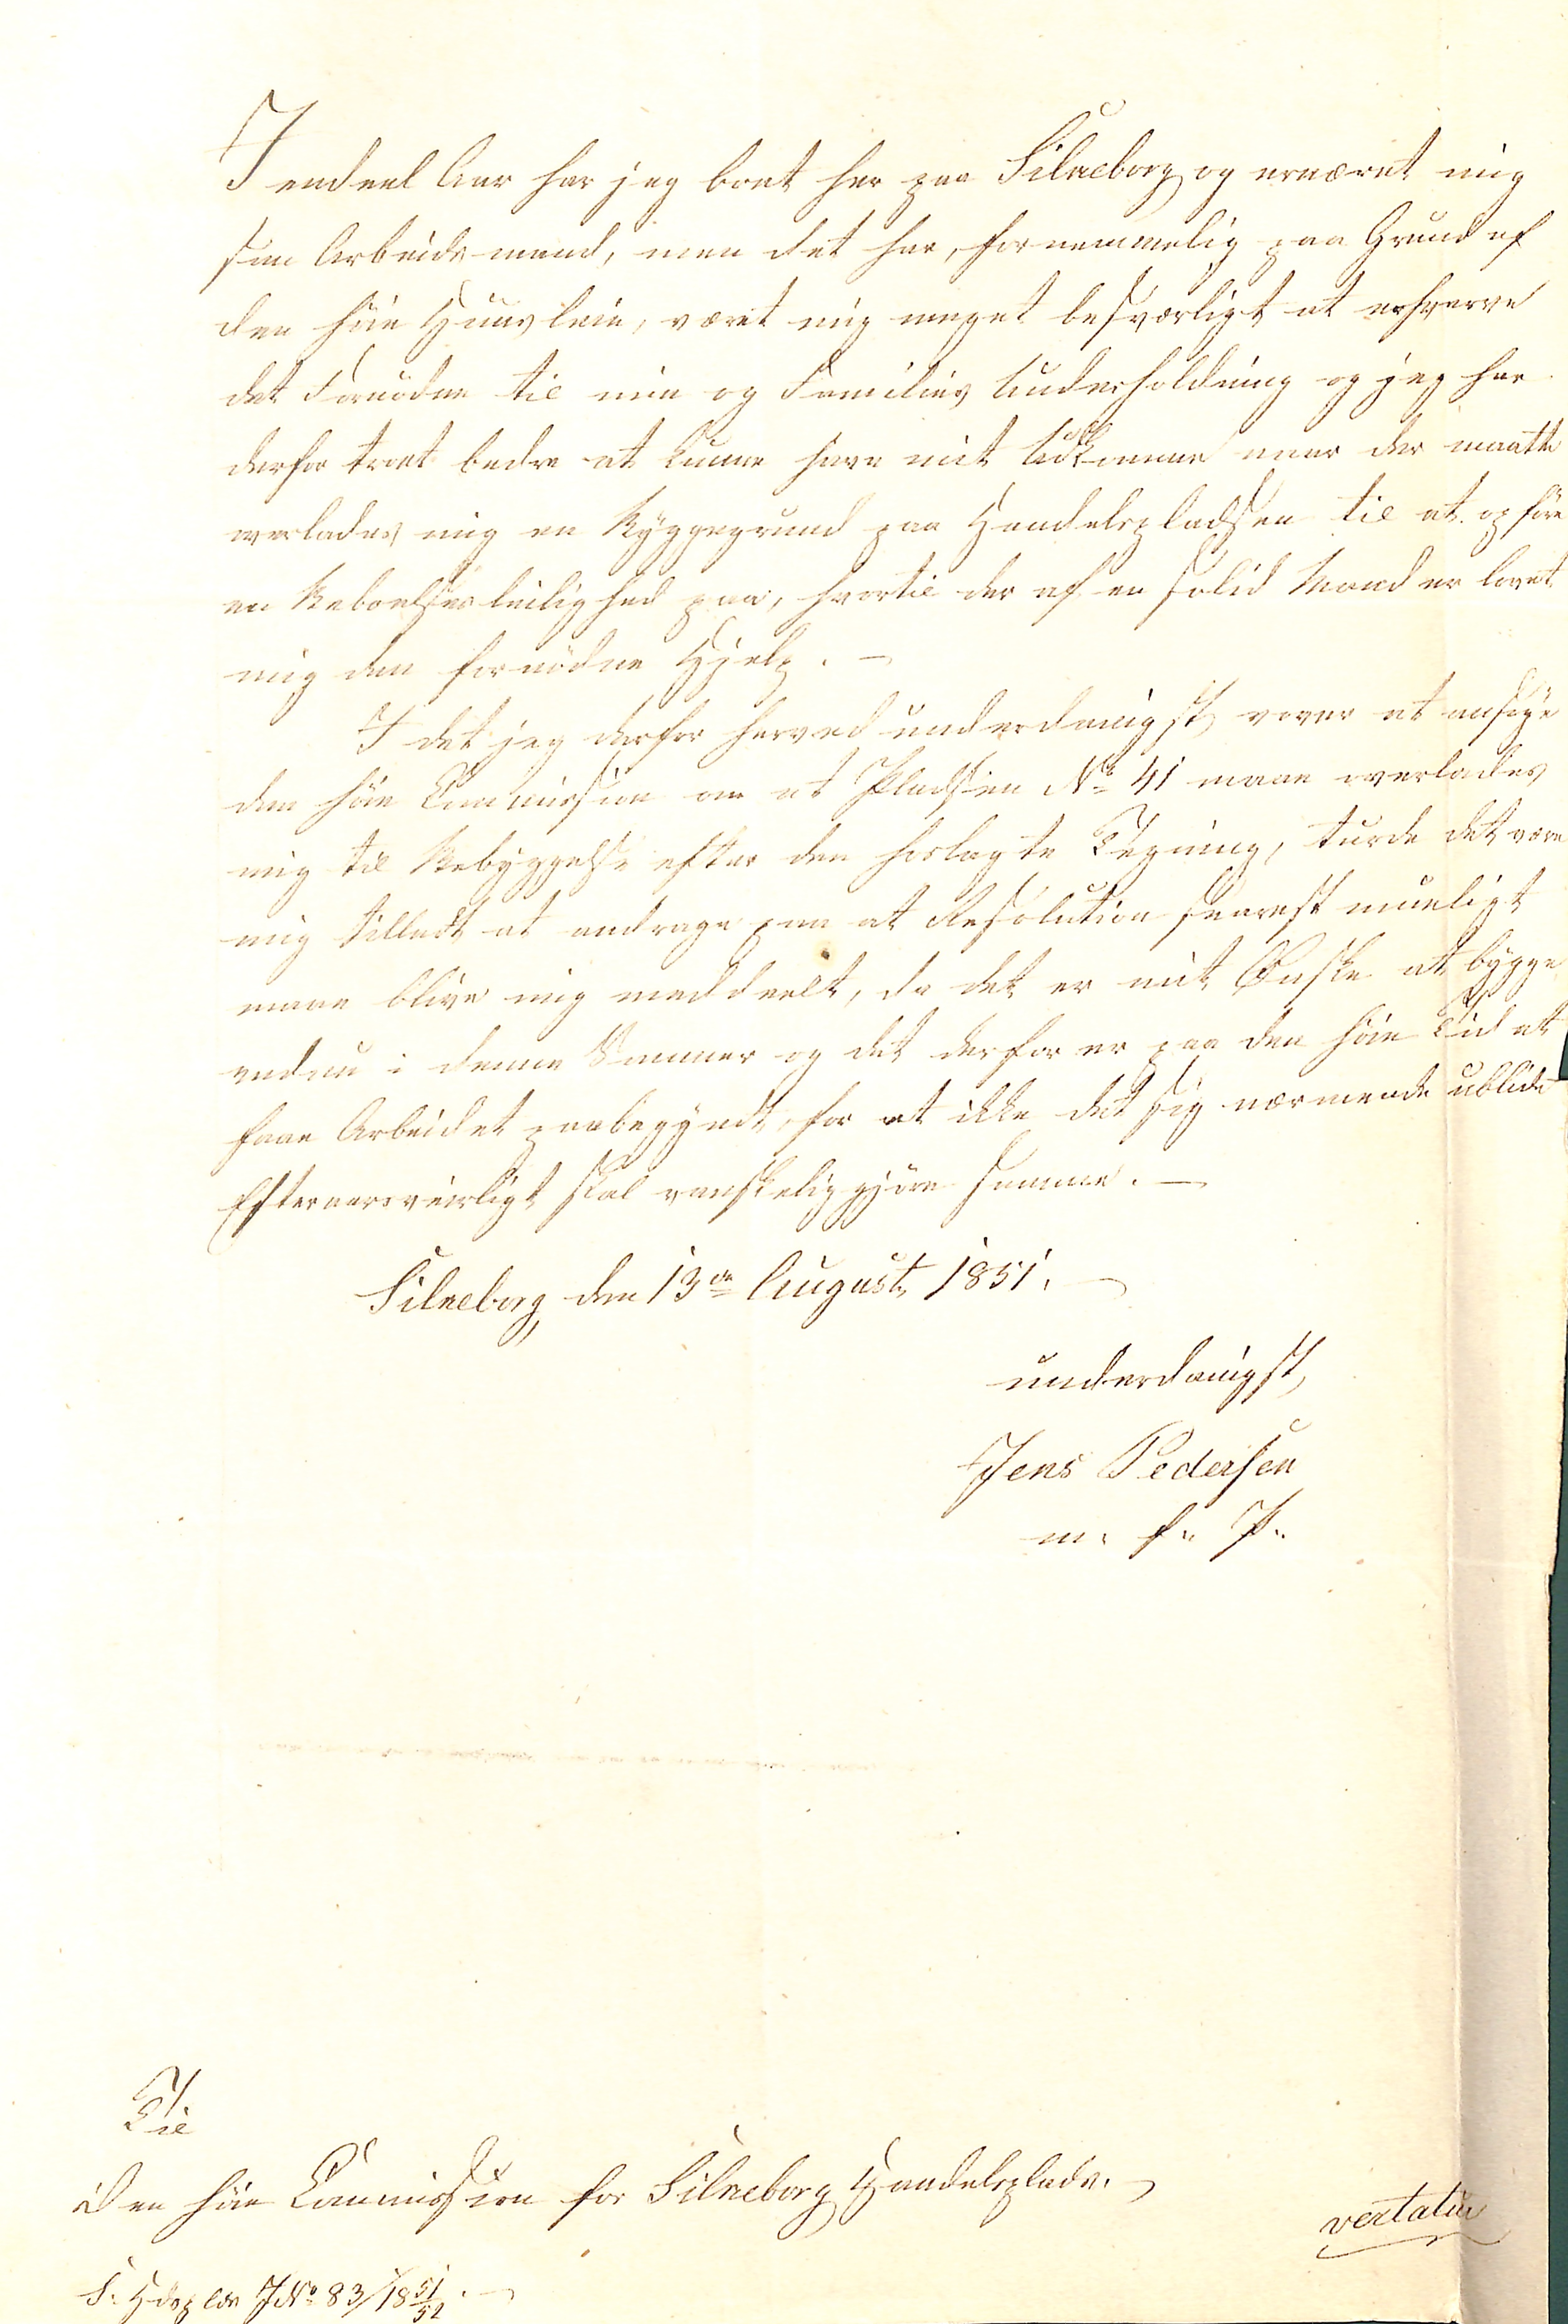 I endeel Aar har jeg boet her paa Silkeborg og ernæret mig
som Arbeidsmand, men det har, fornemmelig paa Grund af
den høie Huusleie, været mig meget besværligt at erhverve
det Fornödne til min og Families Underholdning og jeg har
derfor troet bedre at kunne have mit Udkomme naar der maatte
overlades mig en Byggegrund paa Handelspladsen til at opföre
en Beboelsesleilighed paa, hvortil der af en solid Mand er lovet
mig den fornödne Hjelp. —
I det jeg derfor herved underdanigst vover at ansöge
den höie Commission om at Pladsen No 41 maae overlades
mig til Bebyggelse efter den forlagte Tegning, turde det være
mig tilladt at andrage paa at Resolution snarest mueligt
maae blive mig meddeelt, da det er mit Ønske at bygge
endnu i denne Sommer og det derfor er paa den höie Tid at
faae Arbeidet paabegyndt, for at ikke det sig nærmende ublide
Efteraarsveirligt skal vanskeliggjöre samme. —
Silkeborg den 13de August 1851. —
underdanigst,
Jens Pedersen
m. f. P.
Til
Den höie Commission for Silkeborg Handelsplads.
vertatur
S. Hdsplds J No 83/18 51/52. —